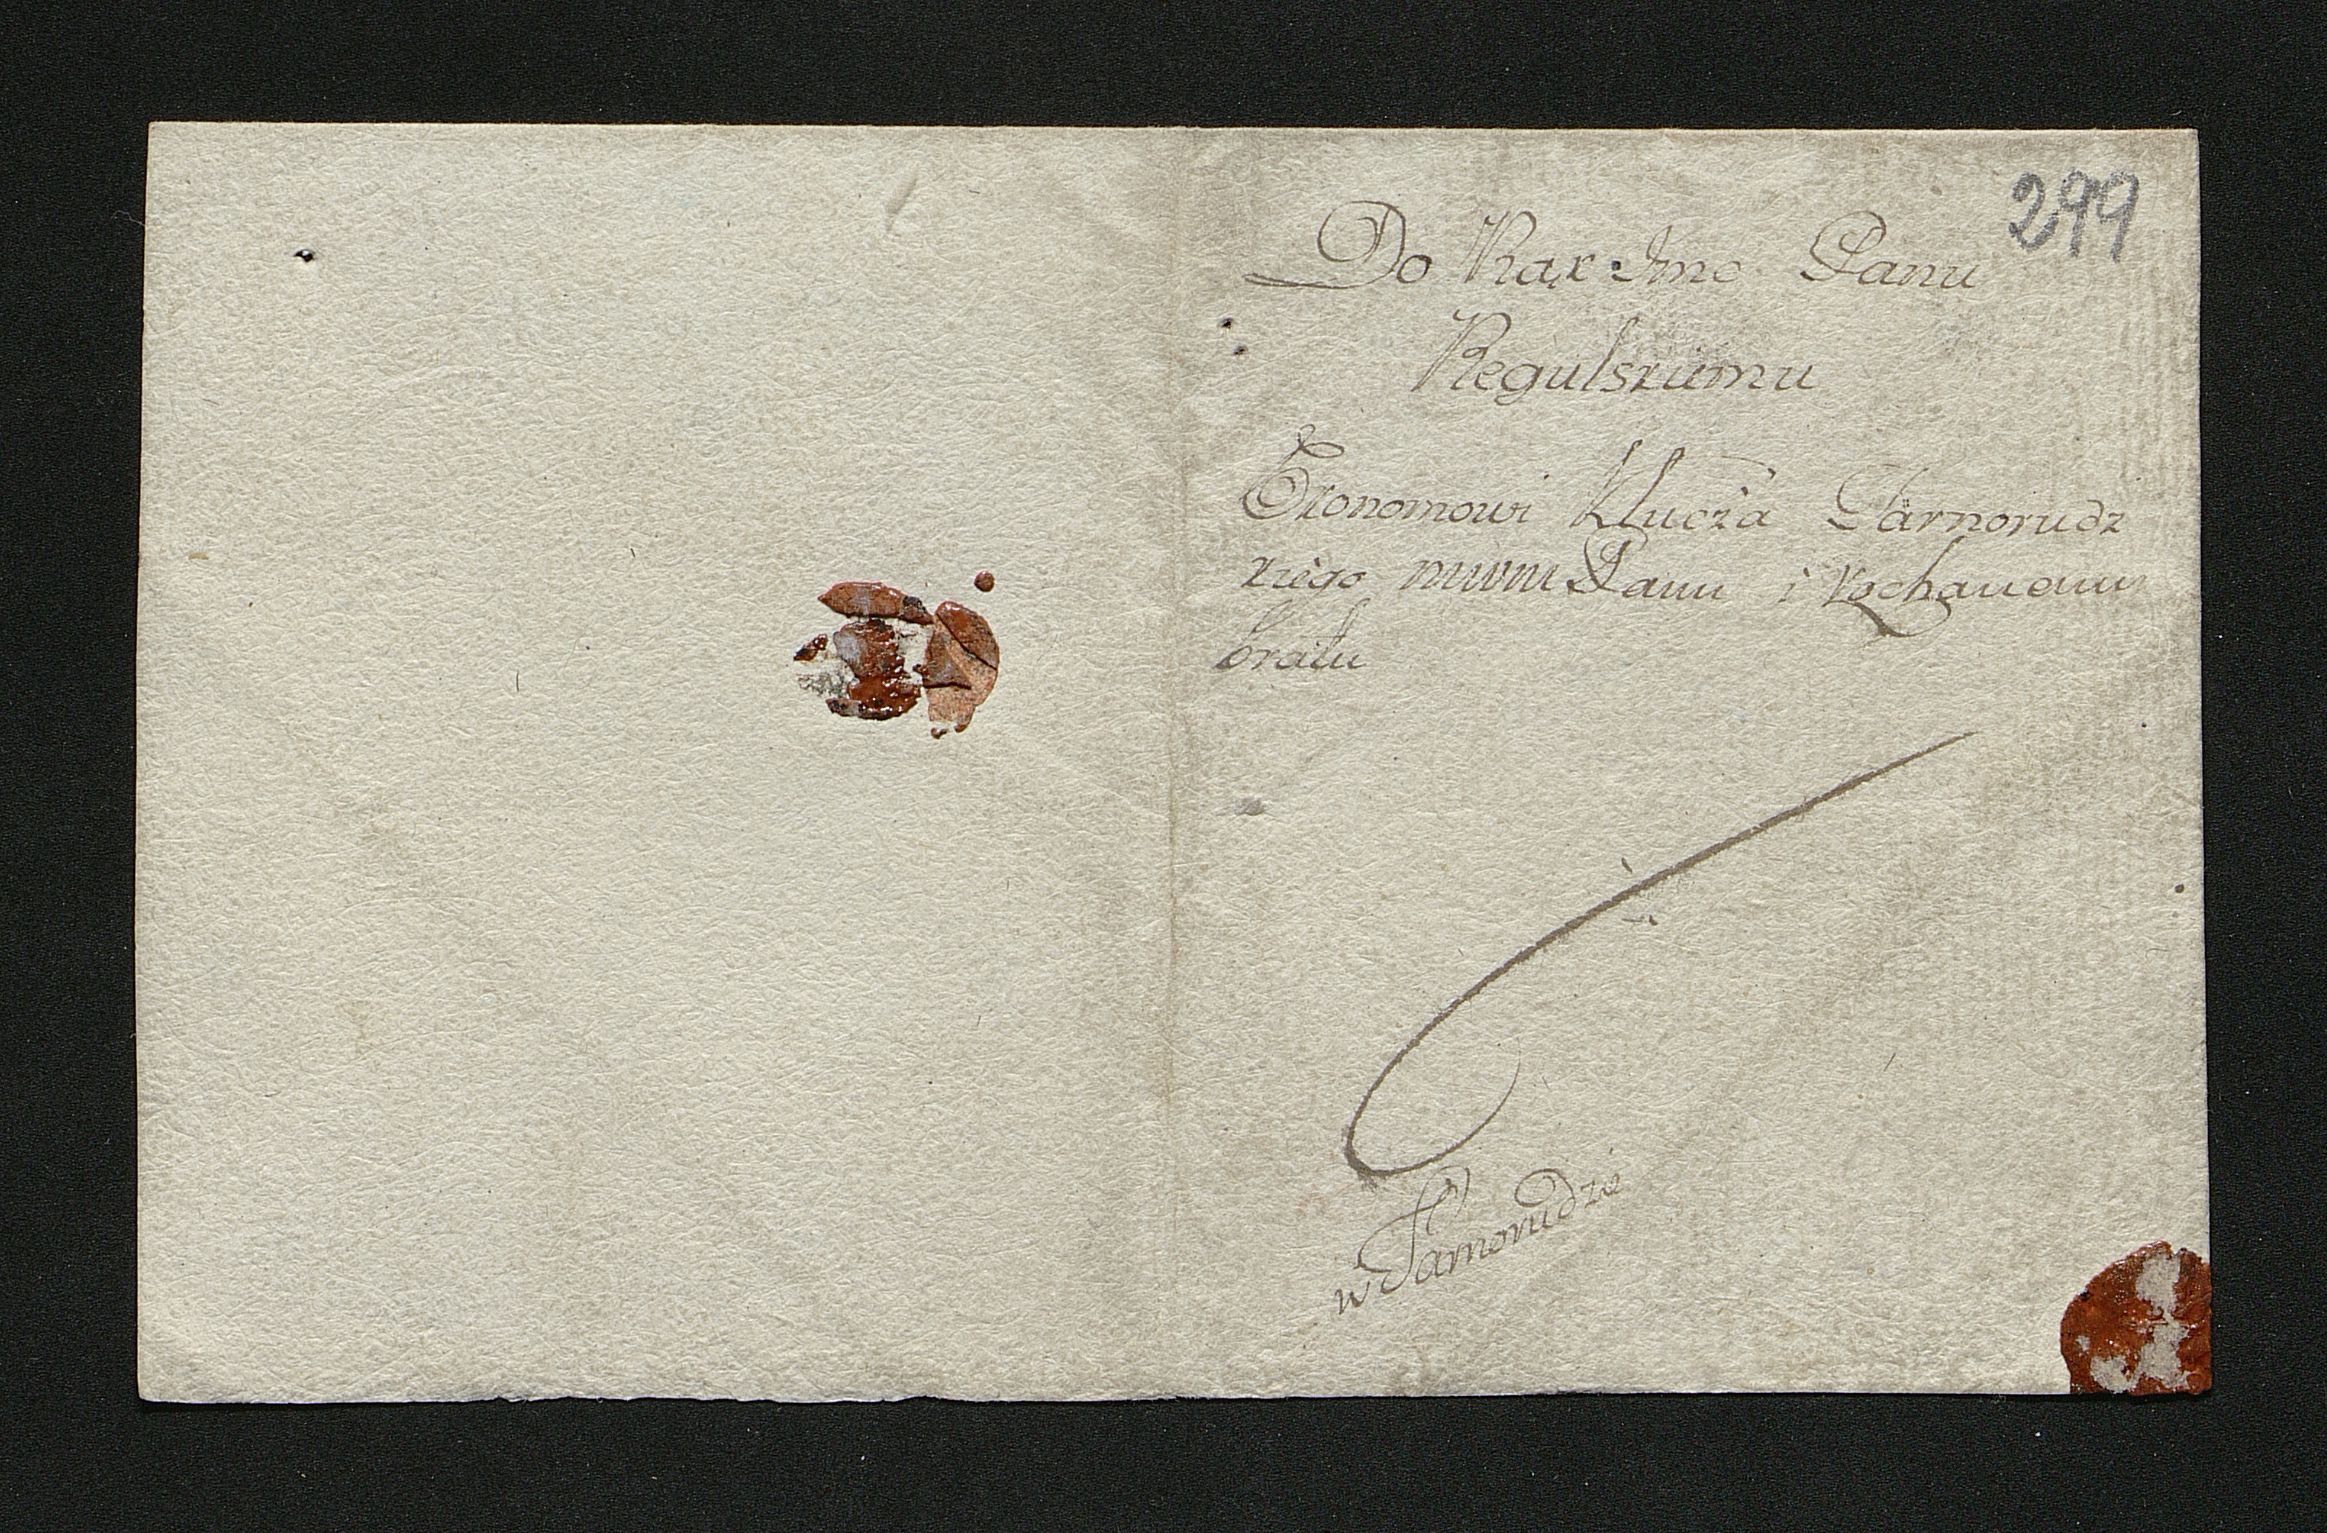 299
Do Rąk Jmc Panu
Regulskiemu
Ekonomowi Klucza Tarnorudz
kiego memu Panu i Kochanemu
bratu
w Tarnorudzie